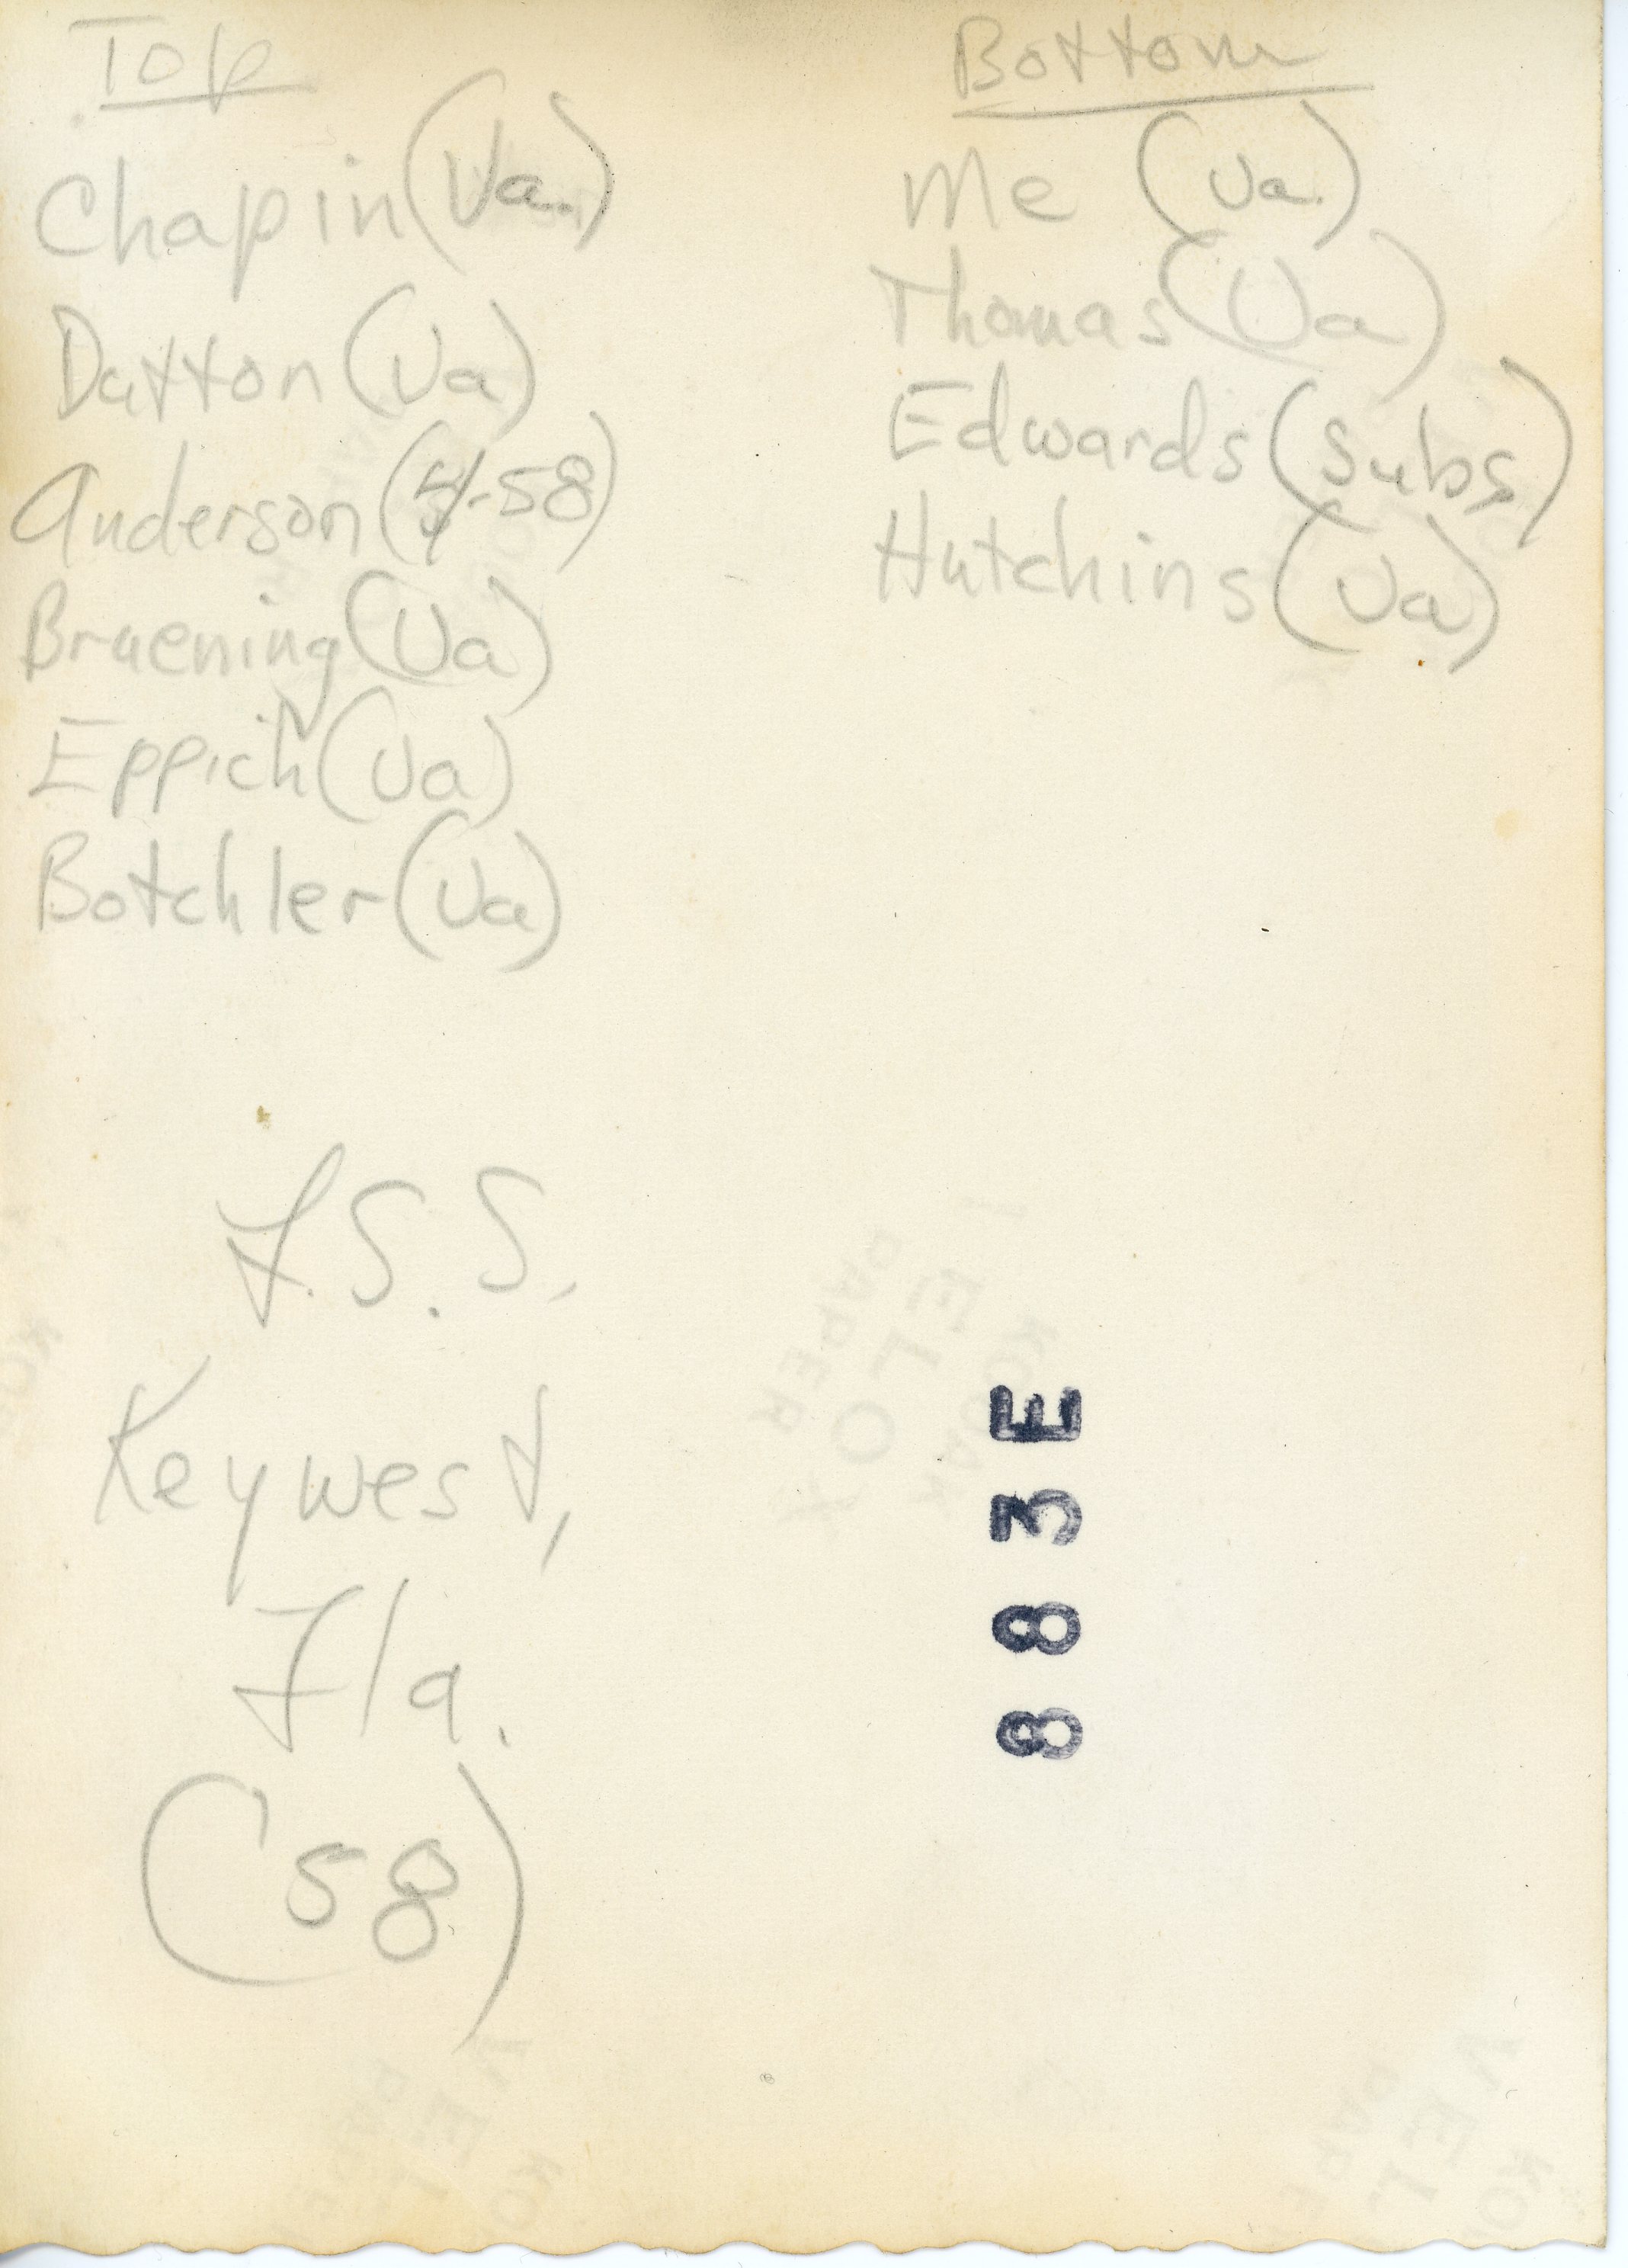 Top
Chapin (Va.)
Datton (Va)
Anderson (4-58)
Bruening (Va)
Eppich (Va)
Botchler (Va)
Bottom
Me (Va.)
Thomas (Va)
Edwards (Subs)
Hutchins (Va)
F.S.S.
Keywest,
Fla.
('58)
883E
KODAK
VELOX
PAPER